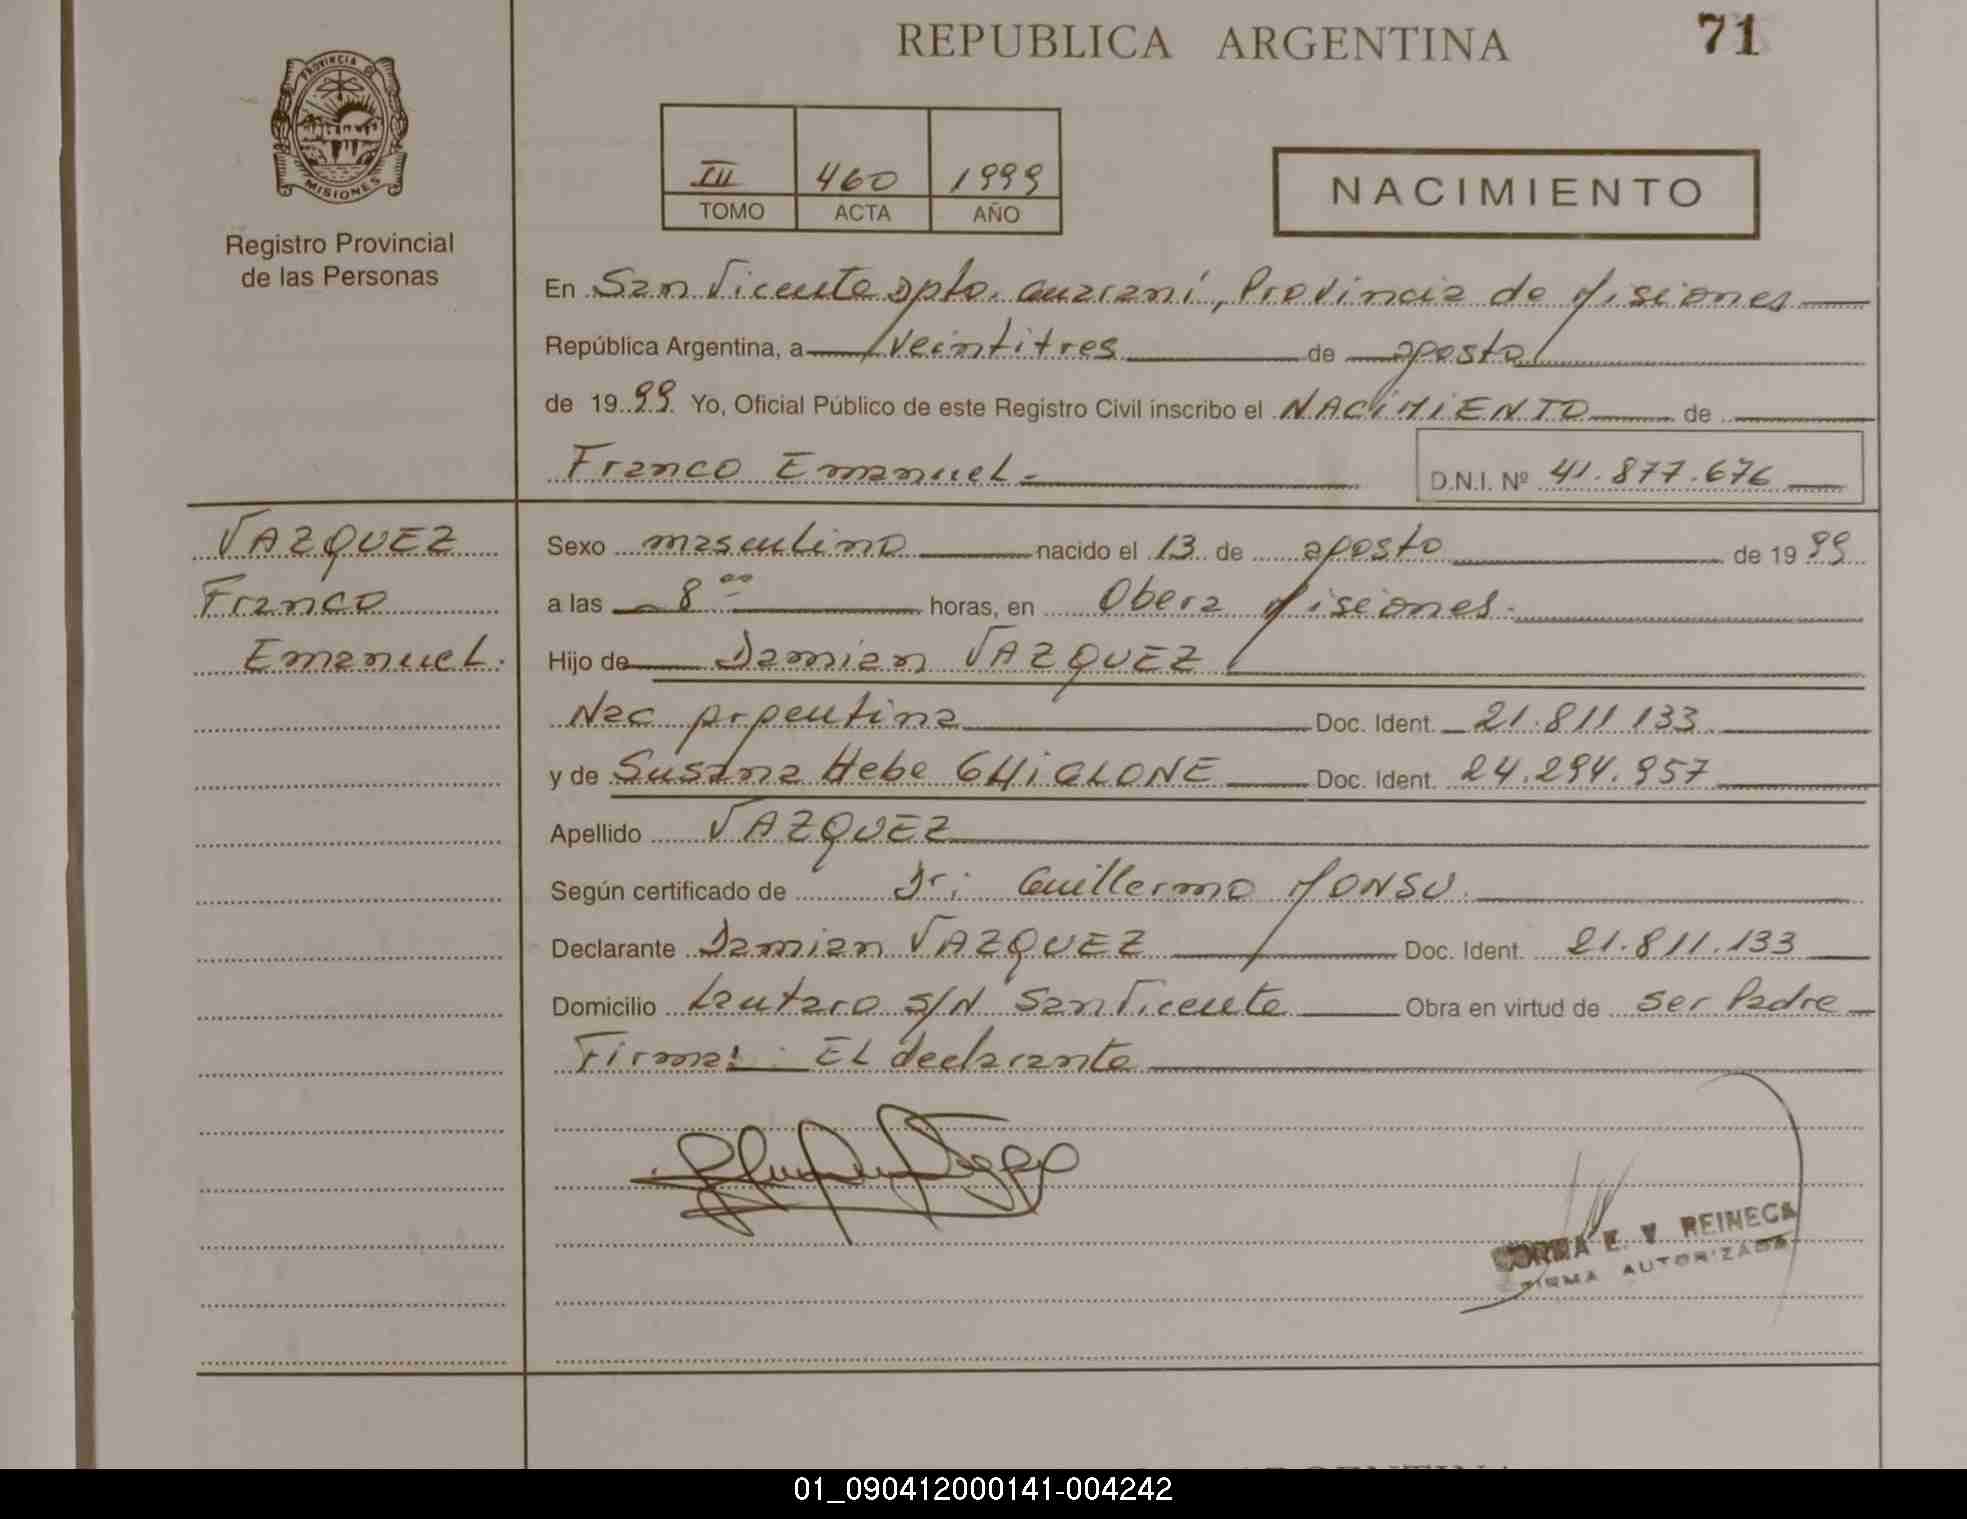 REPUBLICA ARGENTINA
71
PROVINCIA DE
MISIONES
Registro Provincial
de las Personas
III 460 1999
TOMO ACTA AÑO
NACIMIENTO
En San Vicente Dpto. Guaraní, Provincia de Misiones
República Argentina, a veintitres de agosto
de 1999 Yo, Oficial Público de este Registro Civil inscribo el NACIMIENTO de
Franco Emanuel
D.N.I. Nº 41.877.676
VAZQUEZ
Franco
Emanuel.
Sexo masculino nacido el 13 de agosto de 1999
a las 8 00 horas, en Obera Misiones.
Hijo de Damian VAZQUEZ
Nac Argentina Doc. Ident. 21.811.133
y de Susana Hebe GHIGLONE Doc. Ident. 24.294.957
Apellido VAZQUEZ
Según certificado de Dr: Guillermo MONSU.
Declarante Damian VAZQUEZ Doc. Ident. 21.811.133
Domicilio Lautaro S/N San Vicente Obra en virtud de ser Padre
Firma: EL declarante
E. V. REINECA
FIRMA AUTORIZADA
01_090412000141-004242